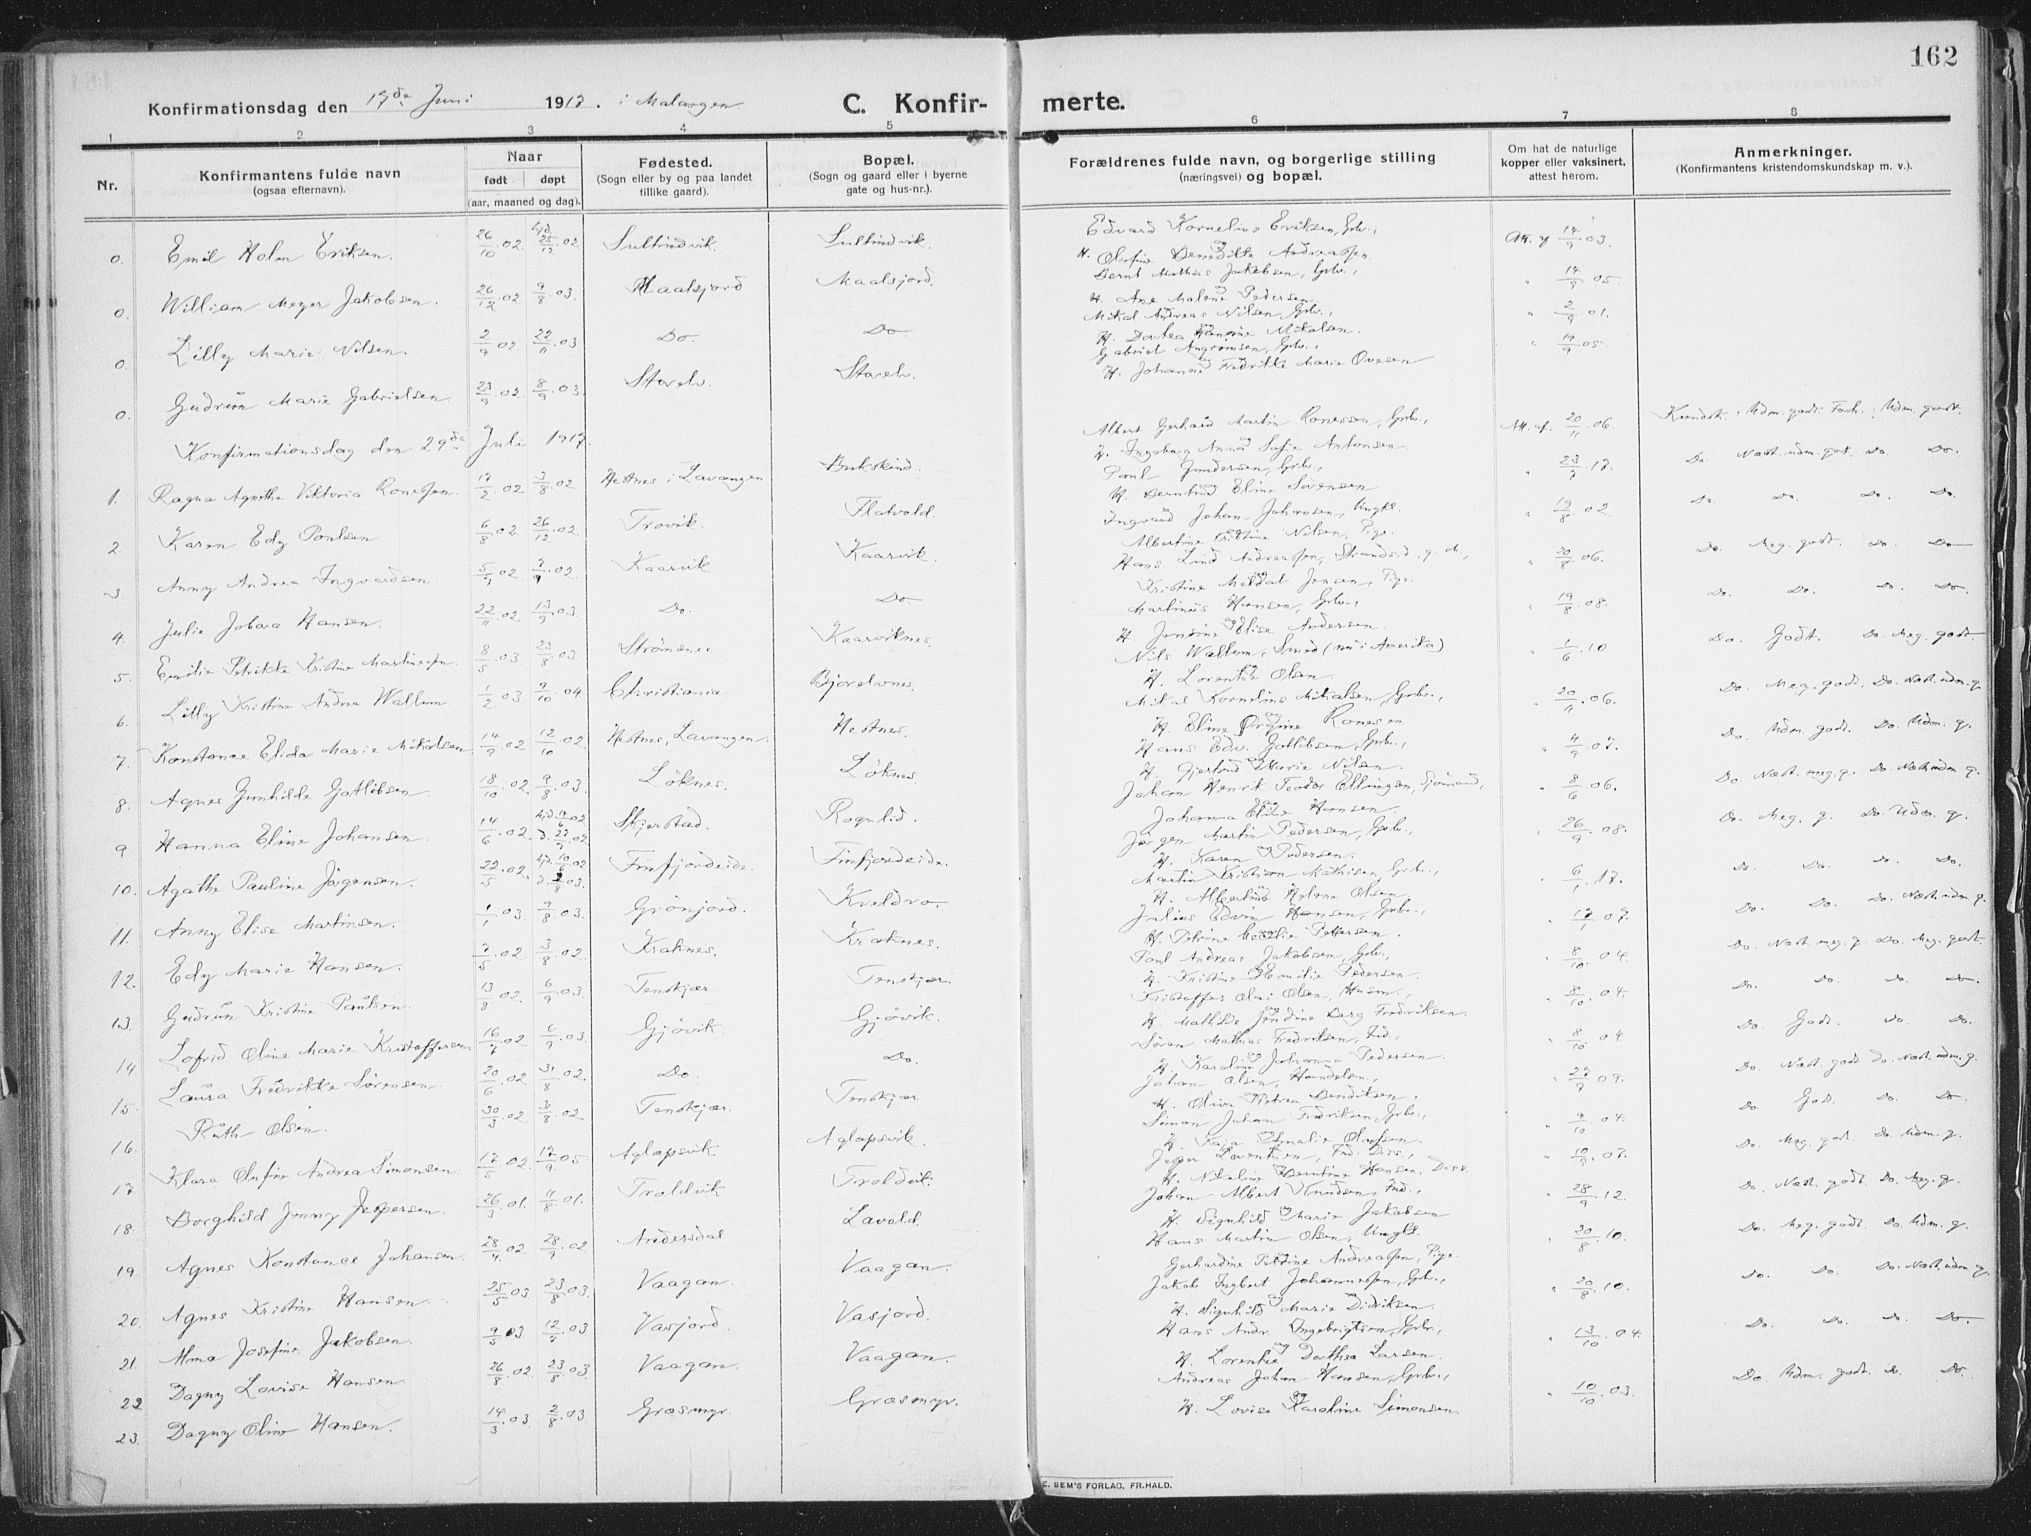 162
Konfirmationsdag den 17de Juni 1917. i Malangen
C. Konfirmerte.
1 2 3 4 5 6 7 8
Nr.
Konfirmantens fulde navn
(ogsaa efternavn).
Naar
født døpt
(aar, maaned og dag).
Fødested.
(Sogn eller by og paa landet
tillike gaard).
Bopæl.
(Sogn og gaard eller i byerne
gate og hus-nr.).
Forældrenes fulde navn, og borgerlige stilling
(næringsvei) og bopæl.
Om hat de naturlige
kopper eller vaksinert,
attest herom.
Anmerkninger.
(Konfirmantens kristendomskundskap m. v.).
0. Emil Holm Eriksen. 26/10 02 Sultindvik. Sultindvik. Edvard Kornelius Eriksen, Grb., H. Olufine Benedikte Andreassen 14/9 03.
0. William Meyer Jakobsen. 26/12 02 9/8 03. Maalsjord Maalsjord. Bernt Mathias Jakobsen, Grb., H. Ane Malene Pedersen. 14/9 05.
0. Lilly Marie Nilsen. 2/9 02 22/11 03 Do. Do Mikal Andreas Nilsen, Grb., H. Dortea Mikalsen. 2/9 01.
0. Gudrun Marie Gabrielsen. 23/9 02 8/9 03 Storelv. Storelv. Gabriel Grb., H. Johanne Fredrikke Marie Ovesen 14/9 05.
Konfirmationsdag den 29de Juli 1917.
1. Ragna Agnethe Viktoria Ronessen. 17/2 02 3/8 02 Hestnes i Lavangen Bukskind. Albert Gerhard Martin Ronessen, Grb., H. Ingeborg Anna Sofie Antonsen Att. af. 20/11 06. Kundsk.: Udm. godt. Forh.: Udm. godt.
2. Karen Edy Poulsen 6/8 02 26/12 02. Trovik. Flatvold. Poul Gundersen, Grb., H. Berntine Eline Sørensen 23/7 17. Do. Næst. udm. got. Do. Do.
3. Anny Andrea Ingvardsen 5/7 02 7/9 02. Kaarvik Kaarvik. Ingvard Johan Johansen, Ungk. Albertine Kristine Nilsen, Pige. 19/8 02 Do. Do. Do. Do.
4. Julie Jobara Hansen. 22/11 02 13/9 03. Do. Do. Hans Lind Andreassen, Strandsid. g. m., Kristine Meldal Jensen, Pige. 30/8 06. Do. Meg. godt. Do. Do
5. Emilie Petrikke Kristine Martinessen 8/5 03 23/8 03. Strømsnes Kaarviknes. Martinus Hansen, Grb., H. Jensine Elise Andersen. 19/8 08. Do. Do. Do. Do.
6. Lilly Kristine Andrea Wallum 1/2 03 9/10 04 Christiania Bjorelvnes. Nils Wallum, Smed (nu i Amerika) H. Lorentze Olsen. 1/6 10 Do. Godt. Do. Meg. godt
7. Konstance Elida Marie Mikalsen 14/9 02 12/10 02. Hestnes, Lavangen. Hestnes. Mikal Kornelius Mikalsen, Grb., H. Eline Ørgine Ronesen 20/11 06. Do. Meg. godt. Do. Næst. udm. g.
8. Agnes Gunhilde Gotlibsen 18/10 02. 9/8 03. Løknes. Løknes. Hans Edv. Gotlibsen, Grb., H. Gjertrud Marie Nilsen. 4/9 07. Do. Udm. godt. Do. Udm. g.
9 Hanna Eline Johansen 14/6 02. Skjerstad. Rognlid. Johan Henrik Teodor Ellingsen, Sjømand, Johanna Eline Hansen. 8/6 06. Do. Næst. meg. g. Do. Næst. udm. g.
10. Agathe Pauline Jørgensen. 22/5 02. Finfjordeide. Finfjordeide. Jørgen Martin Pedersen, Grb., H. Karen Pedersen. 26/9 08. Do. Meg. g. Do. Udm. g.
11. Anny Elise Martinsen. 1/1 03. 9/8 03. Grønjord. Kveldro. Martin Kristian Mathisen, Grb., H. Albertine Helene Olsen 6/1 17. Do. Do. Do. Do.
12. Edy Marie Hansen. 7/5 02 3/8 02. Kraknes. Kraknes. Julius Edvin Hansen, Grb., H. Petrine Cecilie Pettersen. 17/1 07. Do. Do. Do. Næst. udm. g.
13. Gudrun Kristine Paulsen. 13/8 02. 6/9 03. Tenskjær Tenskjær. Paul Andreas Jakobsen, Grb., H. Kristine Emilie Pedersen. 8/10 04. Do. Næst. meg. g. Do. Meg. godt.
14. Lofrid Oline Marie Kristoffersen. 16/7 02. 6/9 03. Gjøvik. Gjøvik. Kristoffer Olai Olsen, Husm., H. Mathilde Jendine Berg Fredriksen. 8/10 04. Do. Do. Do. Do.
15. Laura Fredrikke Sørensen 20/6 02 31/8 02. Do. Do. Søren Mathias Fredriksen, Ind., H. Karoline Johanna Pedersen. 8/10 04. Do. Godt. Do. Do.
16. Ruth Olsen. 30/3 02 31/8 02. Tenskjær. Tenskjær Johan Olsen, Handelsm., H. Olive Petrea Bendiksen. 27/9 09. Do. Næst. godt Do. Næst. udm. g.
17. Klara Olufine Andrea Simonsen. 17/5 02 17/9 05 Aglapsvik Aglapsvik. Simon Johan Fredriksen, Grb., H. Kaja Amalie Olufsen. 9/10 04. Do. God. Do. Do
18. Borghild Jenny Jespersen. 26/3 01. 11/8 01. Troldvik Troldvik. Jesper Lorentsen, Ind. Diss., H. Nikoline Berntine Hansen. Diss. 10/9 07. Do. Meg. god. Do. Udm. g.
19. Agnes Konstance Johansen. 28/4 02 28/9 02 Andersdal Lavold. Johan Albert Knudsen, Ind., H. Signhild Marie Jakobsen 28/9 12. Do. Næst. godt Do. Meg. g.
20. Agnes Kristine Hansen. 25/5 03 23/8 03. Vaagan. Vaagan. Hans Martin Olsen, Ungk. Gerhardine Petrine Andreassen, Pige. 20/8 10. Do. Meg. godt. Do. Udm. g.
21. Alma Josefine Jakobsen 9/5 03 12/7 03 Vasjord. Vasjord. Jakob Ingbert Johannessen, Grb., H. Signhild Marie Didriksen. 20/8 10. Do. Do. Do. Næst. udm. g.
22 Dagny Lovise Hansen 26/8 02. 23/8 03 Vaagan. Vaagan. Hans Andr. Ingebrigtsen, Grb., H. Lorentze Dorthea Larsen. 13/10 04. Do. Do. Do. Do.
23. Dagny Oline Hansen. 14/3 03 2/8 03 Græsmyr. Græsmyr. Andreas Johan Hansen, Grb., H. Lovise Karoline Simonsen. 10/10 03. Do. Udm. godt. Do. Do.
E. SEM'S FORLAG, FR.HALD.